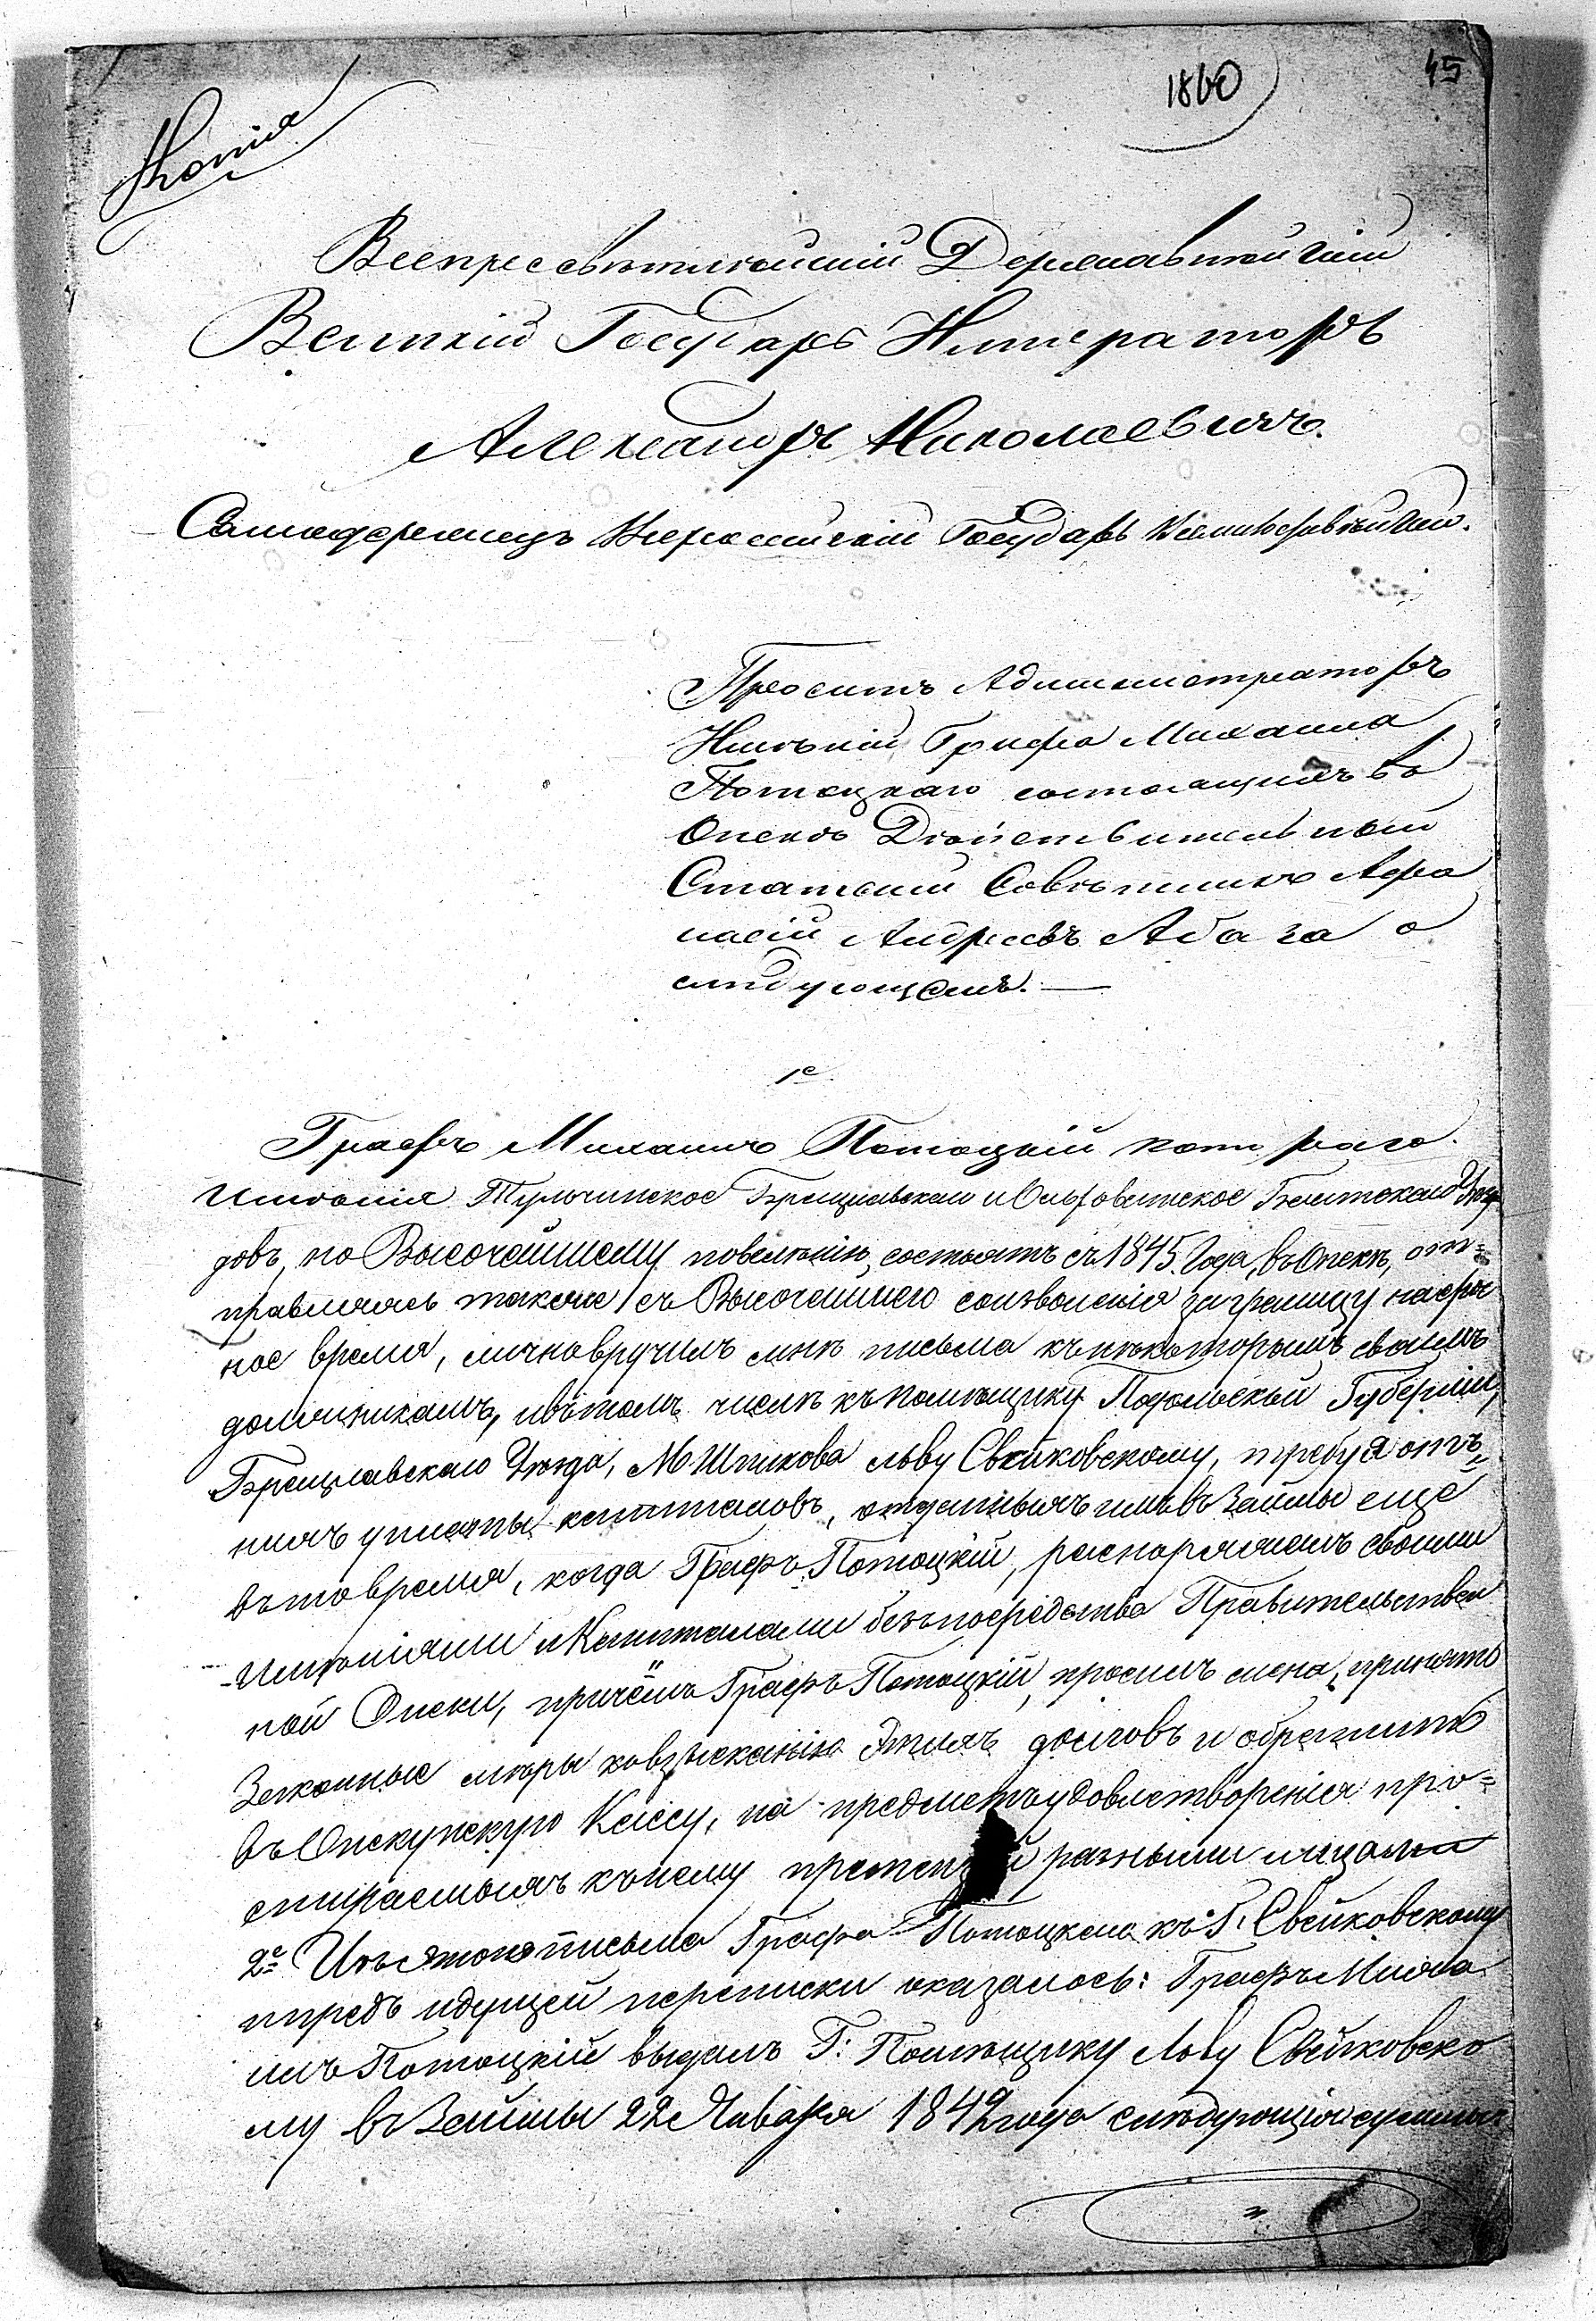 1860
45
Копія
Всепресвѣтлѣйшій Державнѣйшій
Великій Государь Императоръ
Александръ Николаевичъ.
Самодержецъ Всероссійскій Государь Всемилостивѣйшій.
Проситъ Администраторъ
Имѣній Графа Михаила
Потоцкаго состоящихъ въ
Опекѣ Дѣйствительный
Статскій Совѣтникъ Афа
насій Андреевъ Абаза о
слѣдующемъ. —
1е
Графъ Михаилъ Потоцкій котораго
имѣнія Тульчинское Брацлавскаго и Балтскаго Уѣз
довъ, по Высочайшему повелѣнію, состоятъ съ 1845 года, въ Опекѣ, от=
правляясь также съ Высочайшаго соизволенія заграницу на сроч
ное время, лично вручилъ мнѣ письма къ нѣкоторымъ своимъ
должникамъ, и въ томъ числѣ къ помѣщику Подольской Губерніи,
Брацлавскаго Уѣзда, М. Шпикова Льву Свейковскому, требуя отъ
нихъ уплаты капиталовъ, отданныхъ имъ въ Займы ещё
въ то время, когда Графъ Потоцкій, распоряжалъ своими
имѣніями и Капиталами безъ посредства Правительствен
ной Опеки, причёмъ Графъ Потоцкій, просилъ меня, принять
Законные мѣры ко взысканію этихъ долговъ и обратить
въ Опекунскую Кассу, на предметъ удовлетворенія про=
стираемыхъ къ нему претензій разными лицами
2е Изъ этого письма Графа Потоцкаго къ Г. Свейковскому
и предъ идущей переписки оказалось: Графъ Миха
илъ Потоцкій выдалъ Г: Помѣщику Льву Свейковско
му въ Займы 22 Января 1842 года слѣдующія суммы